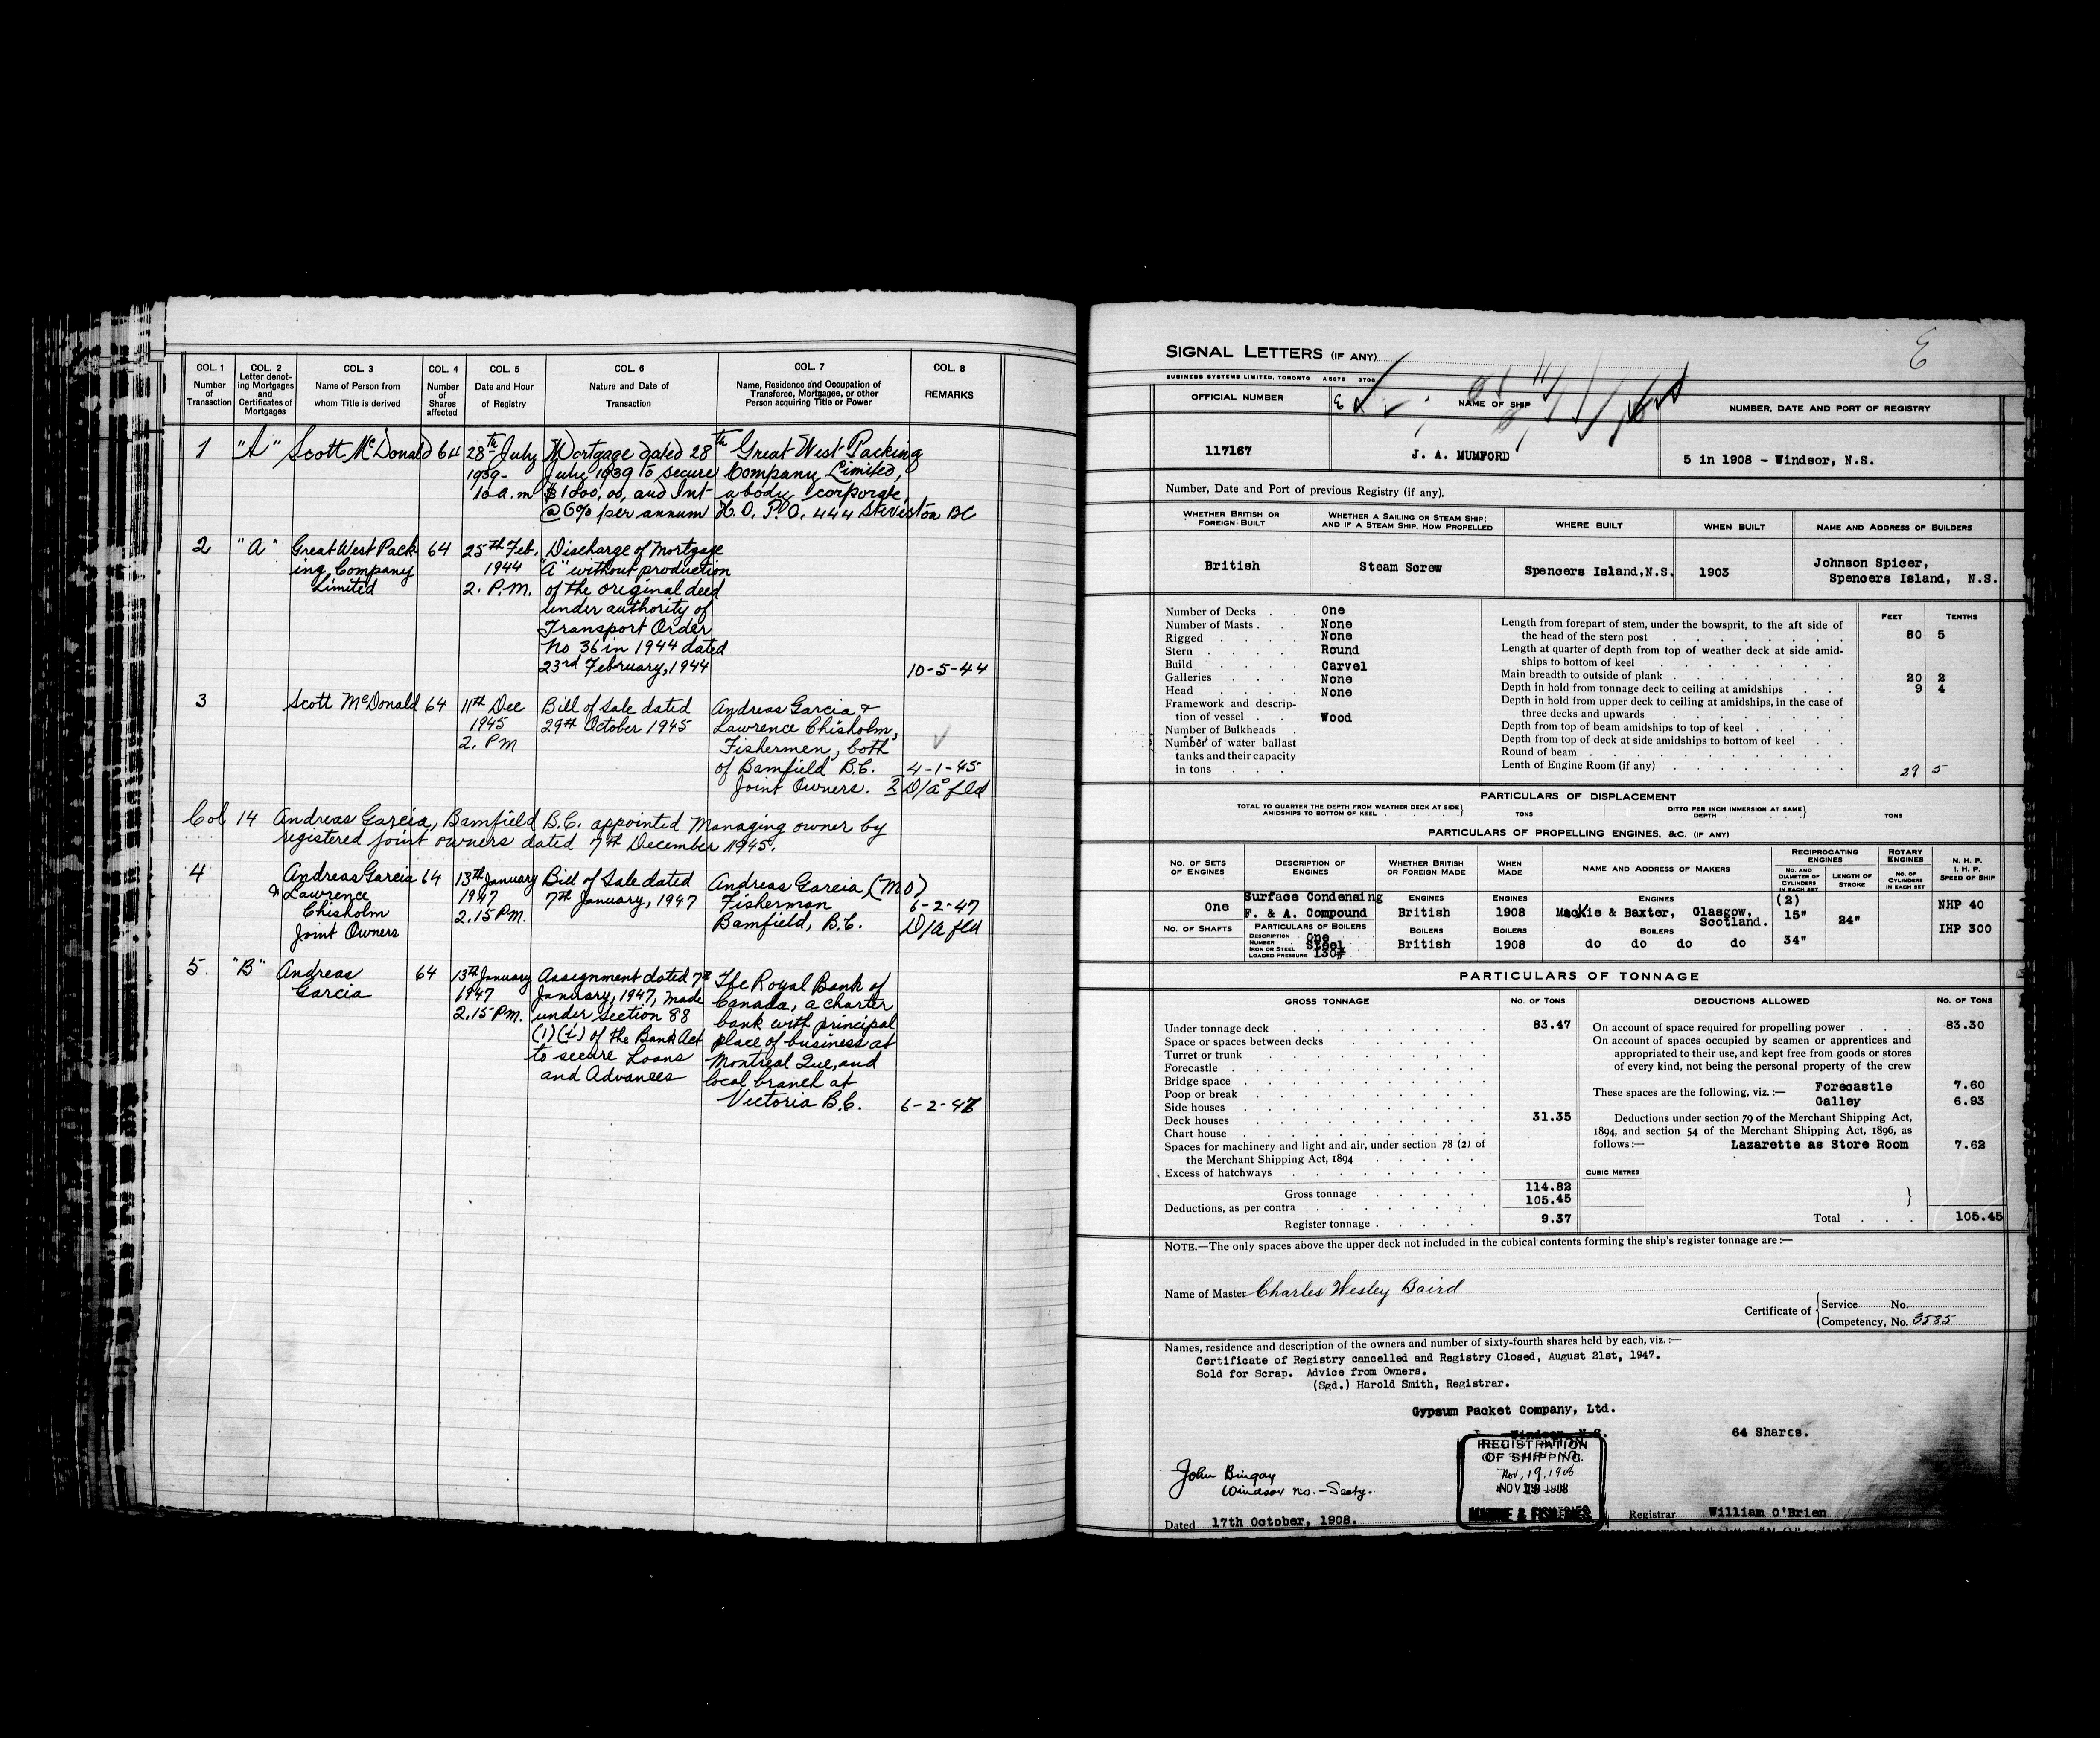 COL. 1 COL. 2 COL. 3 COL. 4 COL. 5 COL. 6 COL. 7 COL. 8
Number of Transaction
Letter denoting Mortgages and Certificates of Mortgages
Name of Person from whom Title is derived
Number of Shares affected
Date and Hour of Registry
Nature and Date of Transaction
Name, Residence and Occupation of Transferee, Mortgagee, or other Person acquiring Title or Power
REMARKS
1 "A" Scott McDonald 64 28th July Mortgage dated 28th Great West Packing
1939- July 1939 to secure Company Limited,
10 a.m $1800.00, and Int- a body corporate,
@ 6% per annum H.O. P.O. 444 Steveston BC
2 "A" Great West Pack 64 25th Feb. Discharge of Mortgage
ing Company 1944 "A" without production
Limited 2. P.M. of the original deed
under authority of
Transport Order
No 36 in 1944 dated
23rd February, 1944 10-5-44
3 Scott McDonald 64 11th Dec Bill of Sale dated Andreas Garcia &
1945 29th October 1945 Lawrence Chisholm,
2. PM Fishermen, both
of Bamfield B.C. 4-1-45
Joint Owners. 2 D/a fld
Col 14 Andreas Garcia, Bamfield B.C. appointed Managing owner by
registered joint owners dated 7th December 1945.
4 Andreas Garcia 64 13th January Bill of Sale dated Andreas Garcia (M O)
& Lawrence 1947 7th January, 1947 Fisherman 6-2-47
Chisholm 2.15 P.M. Bamfield, B.C. D/a fld
Joint Owners
5. "B" Andreas 64 13th January Assignment dated 7th The Royal Bank of
Garcia 1947 January, 1947, made Canada, a charter
2.15 P.M. under section 88 bank with principal
(1)(i) of the Bank Act place of business at
to secure Loans Montreal Que, and
and Advances local branch at
Victoria B.C. 6-2-47
SIGNAL LETTERS (IF ANY)
E
BUSINESS SYSTEMS LIMITED, TORONTO
OFFICIAL NUMBER NAME OF SHIP NUMBER, DATE AND PORT OF REGISTRY
117167 J. A. MUMFORD 5 in 1908 - Windsor, N.S.
Number, Date and Port of previous Registry (if any).
WHETHER BRITISH OR FOREIGN BUILT
WHETHER A SAILING OR STEAM SHIP; AND IF A STEAM SHIP, HOW PROPELLED
WHERE BUILT
WHEN BUILT
NAME AND ADDRESS OF BUILDERS
British Steam Screw Spencers Island, N.S. 1903 Johnson Spicer,
Spencers Island, N.S.
Number of Decks One
Number of Masts None
Rigged None
Stern Round
Build Carvel
Galleries None
Head None
Framework and description of vessel Wood
Number of Bulkheads
Number of water ballast tanks and their capacity in tons
FEET TENTHS
Length from forepart of stem, under the bowsprit, to the aft side of
the head of the stern post 80 5
Length at quarter of depth from top of weather deck at side amidships to bottom of keel
Main breadth to outside of plank 20 2
Depth in hold from tonnage deck to ceiling at amidships 9 4
Depth in hold from upper deck to ceiling at amidships, in the case of
three decks and upwards
Depth from top of beam amidships to top of keel
Depth from top of deck at side amidships to bottom of keel
Round of beam
Lenth of Engine Room (if any) 29 5
PARTICULARS OF DISPLACEMENT
TOTAL TO QUARTER THE DEPTH FROM WEATHER DECK AT SIDE AMIDSHIPS TO BOTTOM OF KEEL TONS DITTO PER INCH IMMERSION AT SAME DEPTH TONS
PARTICULARS OF PROPELLING ENGINES, &C. (IF ANY)
NO. OF SETS OF ENGINES
DESCRIPTION OF ENGINES
WHETHER BRITISH OR FOREIGN MADE
WHEN MADE
NAME AND ADDRESS OF MAKERS
RECIPROCATING ENGINES
NO. AND DIAMETER OF CYLINDERS IN EACH SET
LENGTH OF STROKE
ROTARY ENGINES
NO. OF CYLINDERS IN EACH SET
N. H. P.
I. H. P.
SPEED OF SHIP
One Surface Condensing
F. & A. Compound
ENGINES British ENGINES 1908 ENGINES Mackie & Baxter, Glasgow, Scotland. (2) 15" 24" NHP 40
NO. OF SHAFTS PARTICULARS OF BOILERS
DESCRIPTION
NUMBER One
IRON OR STEEL Steel
LOADED PRESSURE 130#
BOILERS British BOILERS 1908 BOILERS do do do do 34" IHP 300
PARTICULARS OF TONNAGE
GROSS TONNAGE NO. OF TONS DEDUCTIONS ALLOWED NO. OF TONS
Under tonnage deck 83.47
Space or spaces between decks
Turret or trunk
Forecastle
Bridge space
Poop or break
Side houses
Deck houses 31.35
Chart house
Spaces for machinery and light and air, under section 78 (2) of
the Merchant Shipping Act, 1894
Excess of hatchways
Gross tonnage 114.82
Deductions, as per contra 105.45
Register tonnage 9.37
On account of space required for propelling power 83.30
On account of spaces occupied by seamen or apprentices and
appropriated to their use, and kept free from goods or stores
of every kind, not being the personal property of the crew
These spaces are the following, viz.:— Forecastle 7.60
Galley 6.93
Deductions under section 79 of the Merchant Shipping Act,
1894, and section 54 of the Merchant Shipping Act, 1896, as
follows:— Lazarette as Store Room 7.62
CUBIC METRES
Total 105.45
NOTE.—The only spaces above the upper deck not included in the cubical contents forming the ship's register tonnage are:—
Name of Master Charles Wesley Baird
Certificate of Service No.
Competency, No. 3585
Names, residence and description of the owners and number of sixty-fourth shares held by each, viz.:—
Certificate of Registry cancelled and Registry Closed, August 21st, 1947.
Sold for Scrap. Advice from Owners.
(Sgd.) Harold Smith, Registrar.
Gypsum Packet Company, Ltd.
Windsor, N.S. 64 Shares.
REGISTRATION
OF SHIPPING.
Nov. 19, 1908
NOV 19 1908
MARINE & FISHERIES
John Bingay
Windsor N.S. - Secty.
Dated 17th October, 1908. Registrar William O'Brien